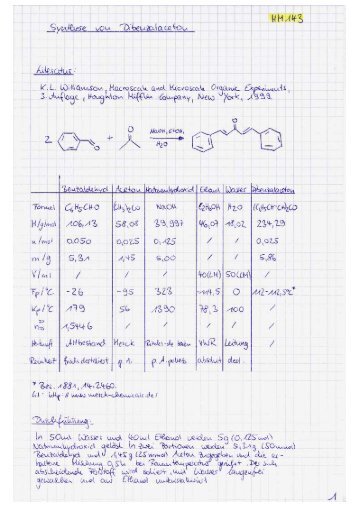 HM 143
Synthese von Dibenzalaceton
Literatur:
K.L. Williamson, Macroscale and Microscale Organic Experiments,
3. Auflage, Houghton Mifflin Company, New York, 1999
2 + NaOH, EtOH, H₂O
Benzaldehyd Aceton Natriumhydroxid Ethanol Wasser Dibenzalaceton
Formel C₆H₅CHO (CH₃)₂CO NaOH C₂H₅OH H₂O
M/g/mol 106,13 58,08 39,997 46,07 18,02 234,29
n/mol 0,050 0,025 0,125 / / 0,025
m/g 5,31 1,45 5,00 / / 5,86
V/ml / / / 40(LM) 50(LM) /
Fp/°C -26 -95 323 -114,5 0 112-112,5°*
Kp/°C 179 56 1390 78,3 100 /
n 1,5446 / / / / /
Herkunft Altbestand Merck VWR Leitung /
Reinheit frisch destilliert p.A. p.A. pellets absolut dest. /
* Ber. 1881, 14, 2460.
Durchführung:
In 50ml Wasser und 40ml Ethanol werden 5g (0,125mol)
Natriumhydroxid gelöst. In zwei Portionen werden 5,31g (50mmol)
Benzaldehyd und 1,45g (25mmol) Aceton zugegeben und die er-
haltene Mischung 0,5h bei Raumtemperatur gerührt. Der sich
abscheidende Feststoff wird isoliert, mit Wasser
gewaschen und aus Ethanol umkristallisiert
1